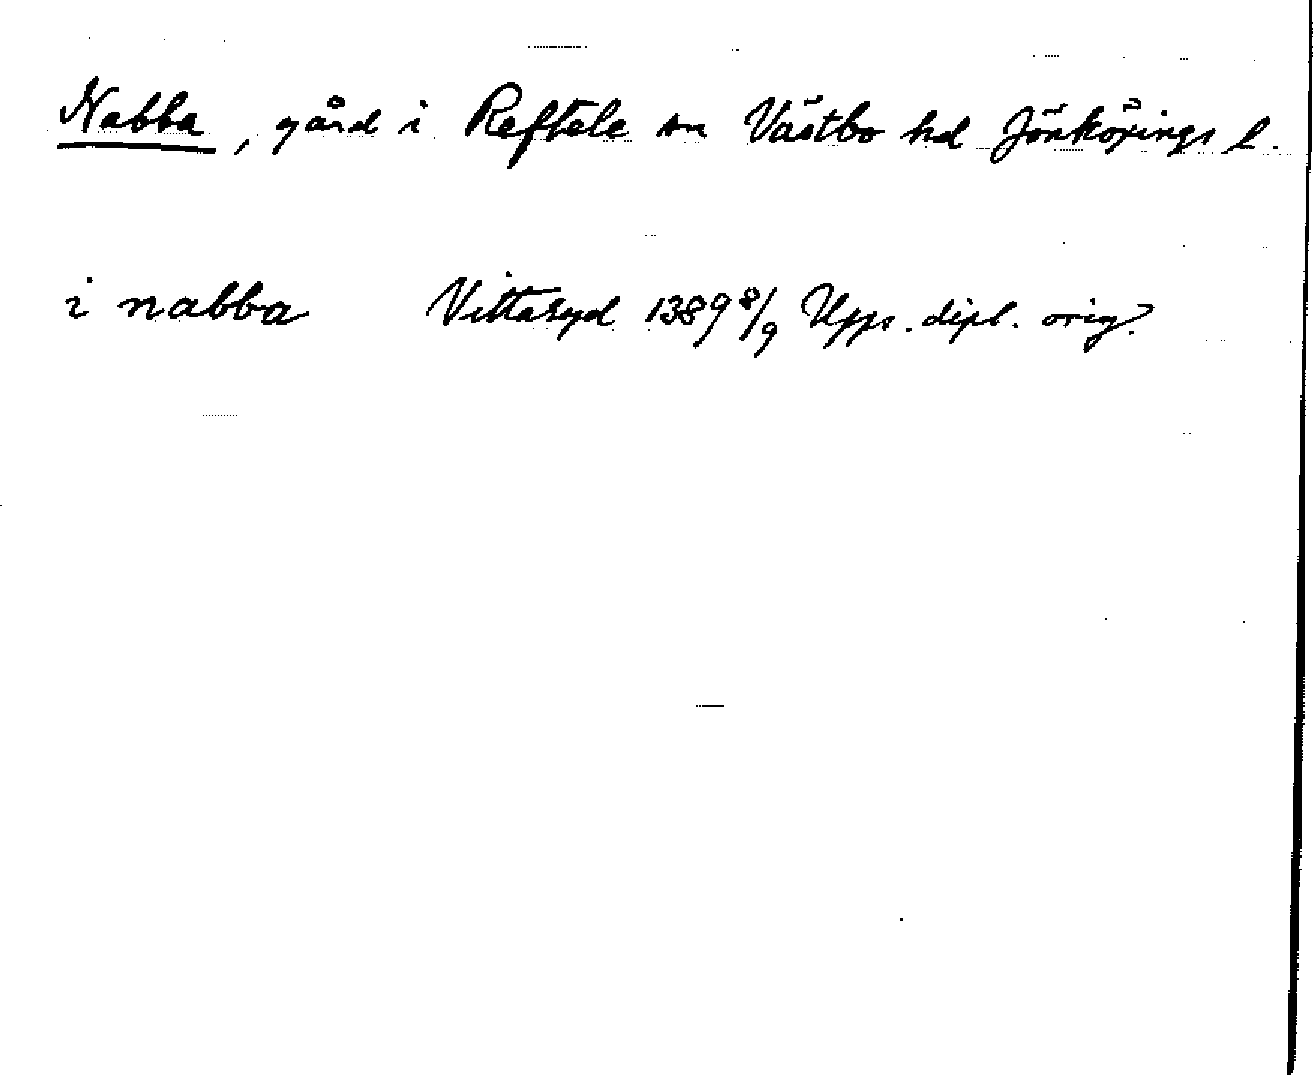 Nabba, gård i Reftele sn Västbo hd Jönköpings l.
i nabba Vittaryd 1389 8/9 Upps. dipl. orig.